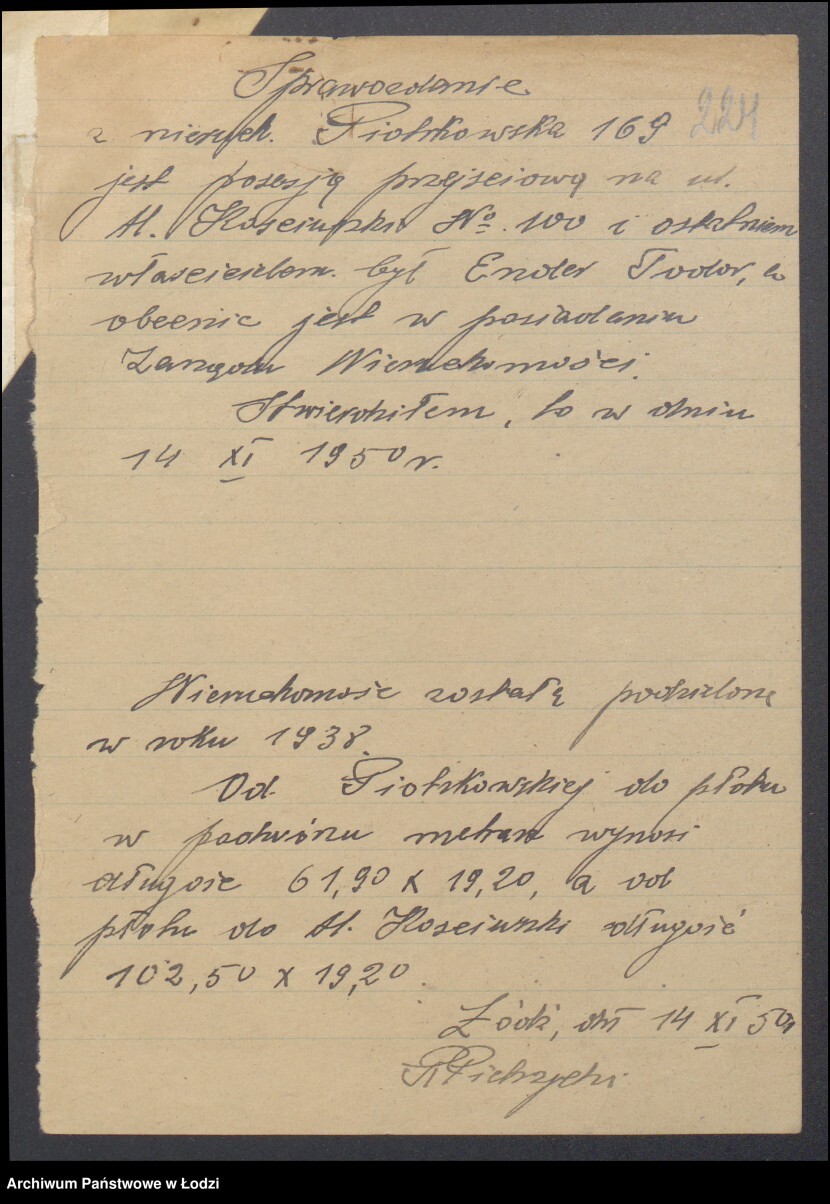 Sprawozdanie
224
z nieruch. Piotrkowska 169
jest posesją przejściową na ul.
Al. Kościuszki № 100 i ostatniem
właścicielem był Ender Todor, to
obecnie jest w posiadaniu
Zarządu Nieruchomości.
Stwierdziłem, to w dniu
14 XI 1950 r.
Nieruchomość została podzielona
w roku 1938.
Od Piotrkowskiej do płotu
w podwórzu wynosi
długość 61,90 x 19,20, a od
płotu do Al. Kościuszki długość
102,50 x 19,20.
Łódź, dn 14 XI 50
Archiwum Państwowe w Łodzi